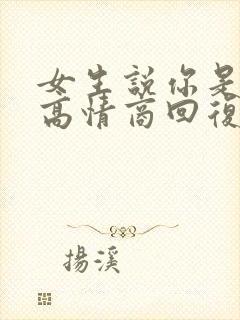 女生説你是
高情商回復
揚溪